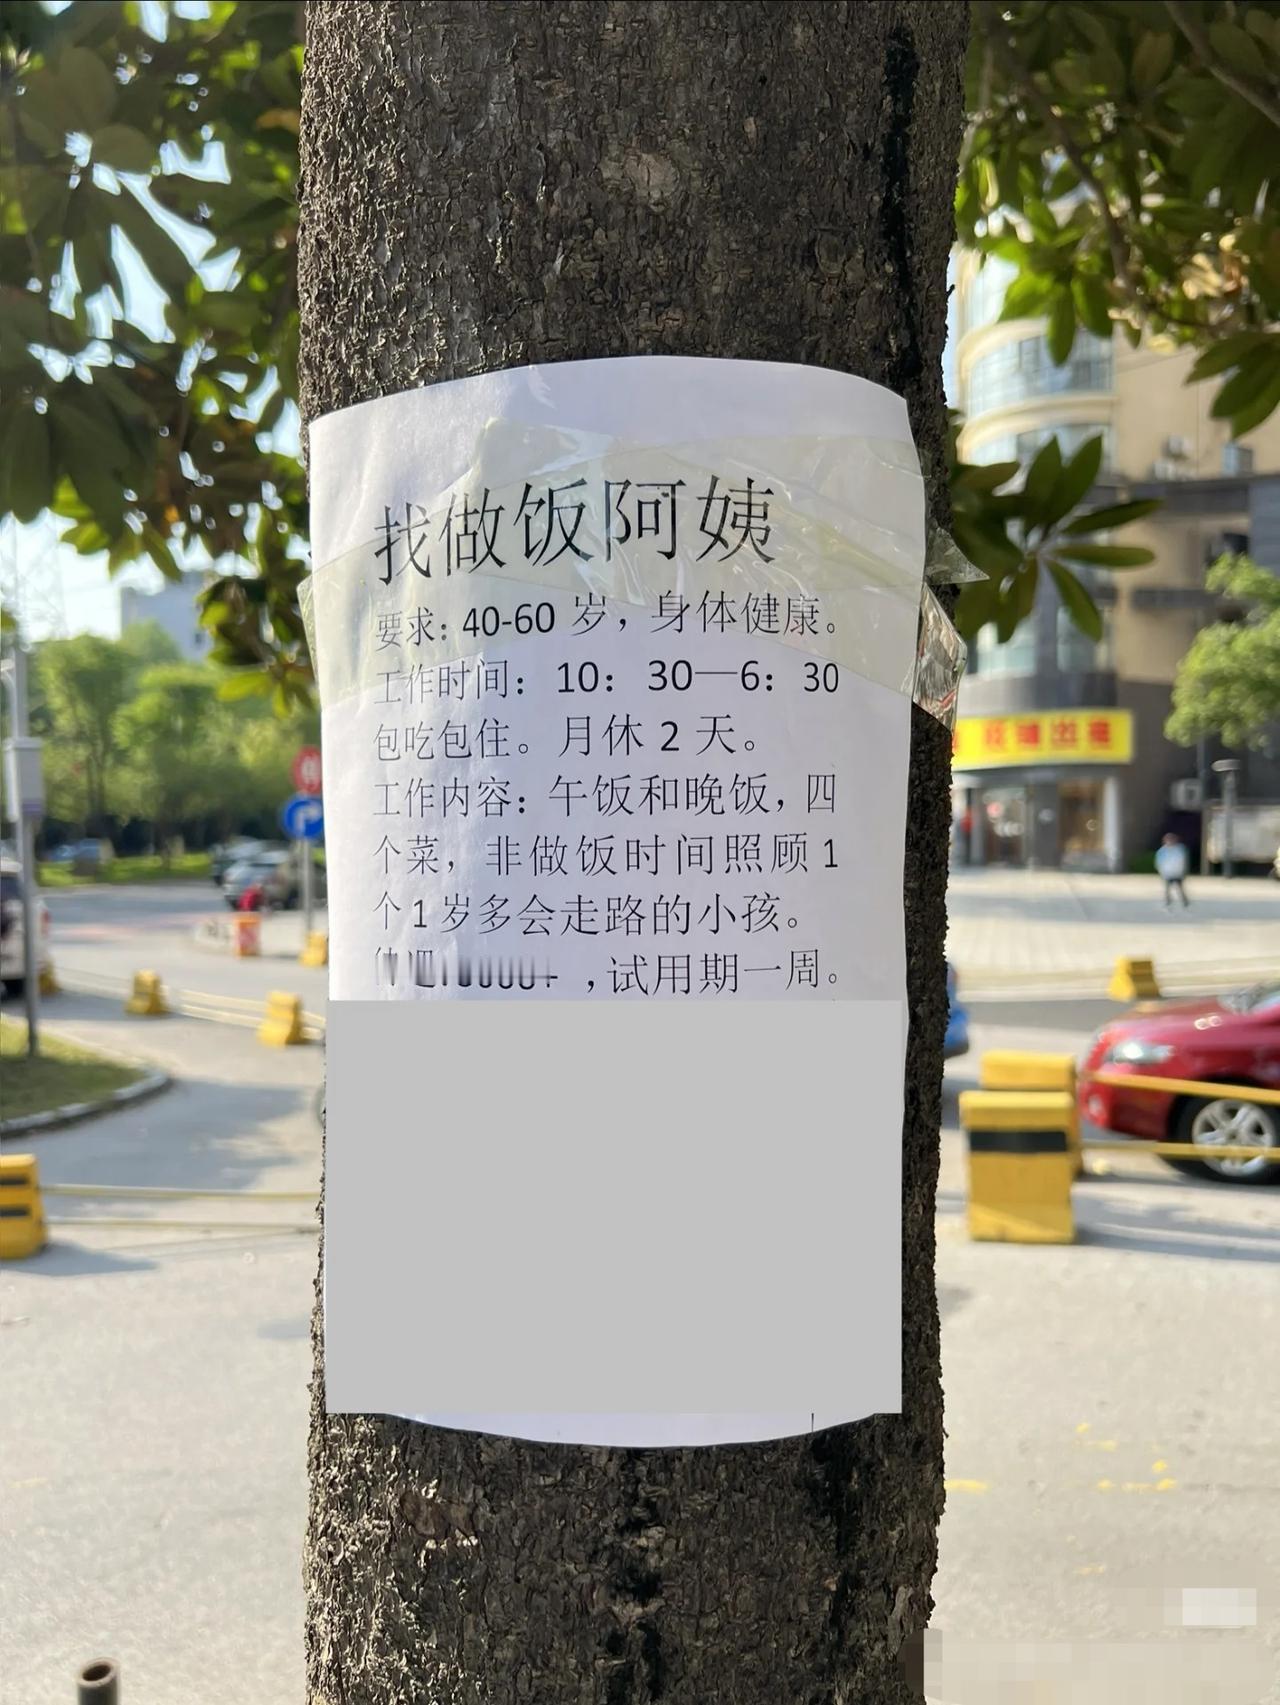 找做饭阿姨
要求：40-60 岁，身体健康。
工作时间：10：30—6：30
包吃包住。月休 2 天。
工作内容：午饭和晚饭，四
个菜，非做饭时间照顾 1
个 1 岁多会走路的小孩。
，试用期一周。
P